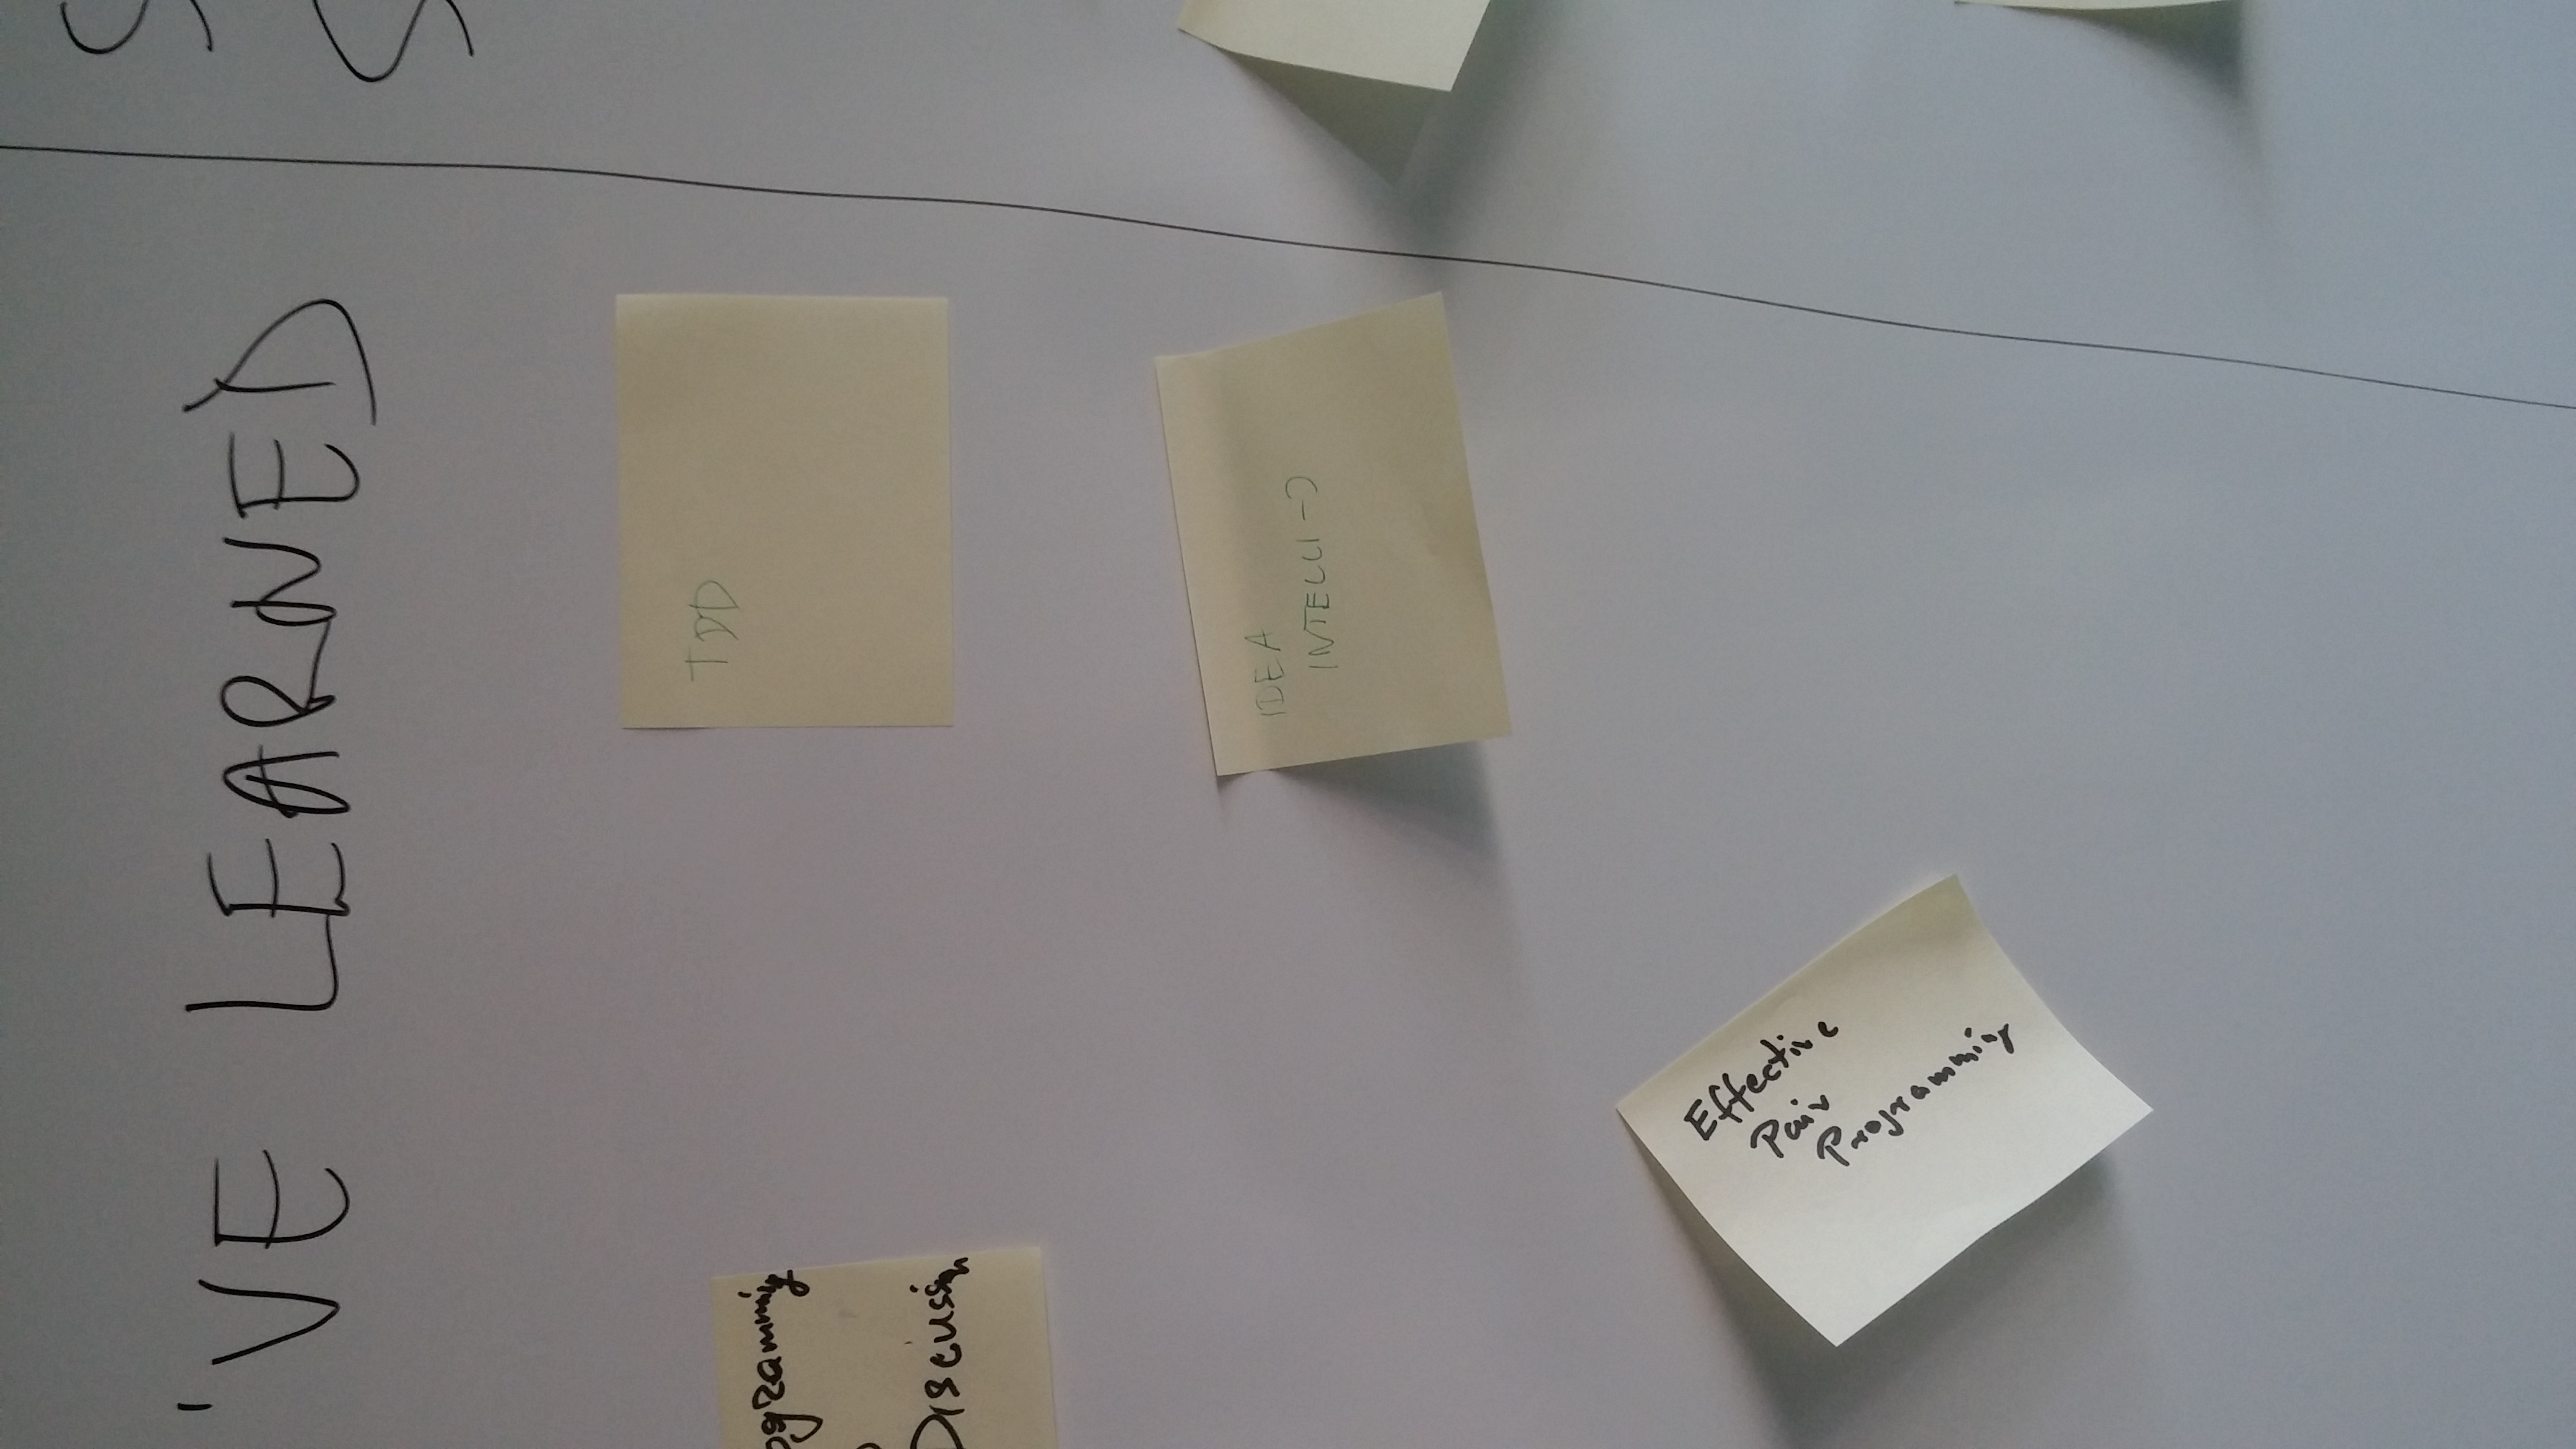 'VE LEARNED
TDD
ogramming
Discussion
IDEA
INTELLI-J
Effective
Pair
Programming